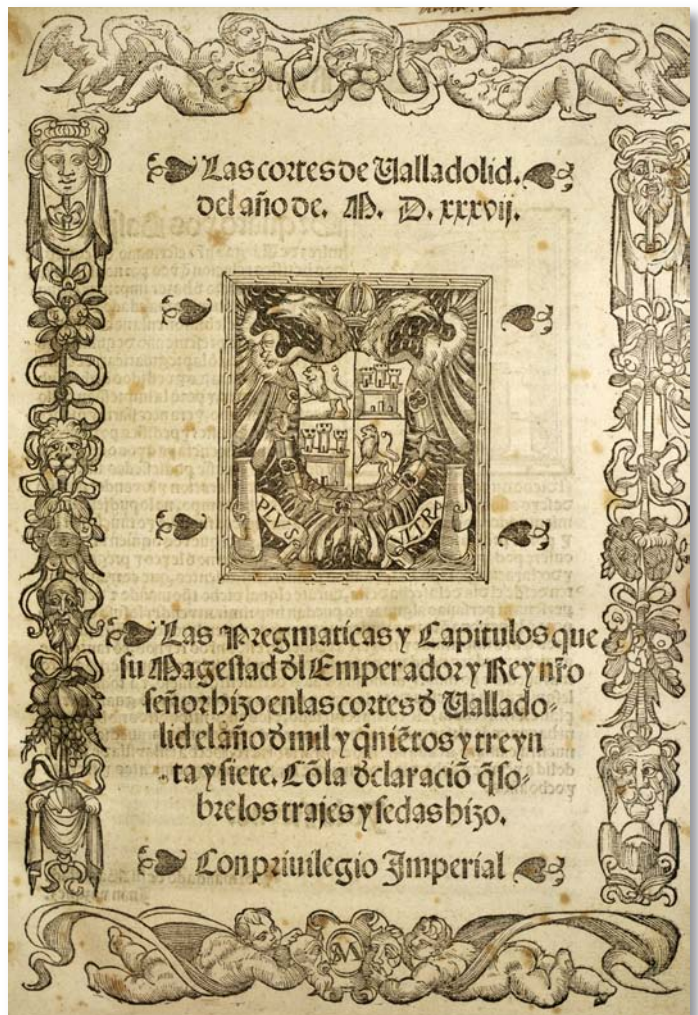 Las cortes de Ualladolid.
del año de. M. D. xxxvij.
PLVS VLTRA
Las Pregmaticas y Capitulos que
su Magestad dl Emperador y Rey nr̃o
señor hizo en las cortes d Uallado-
lid el año d mil y q̃niẽtos y treyn
ta y siete. Cõ la dclaraciõ q̃ so-
bre los trajes y sedas hizo.
Con priuilegio Imperial
M